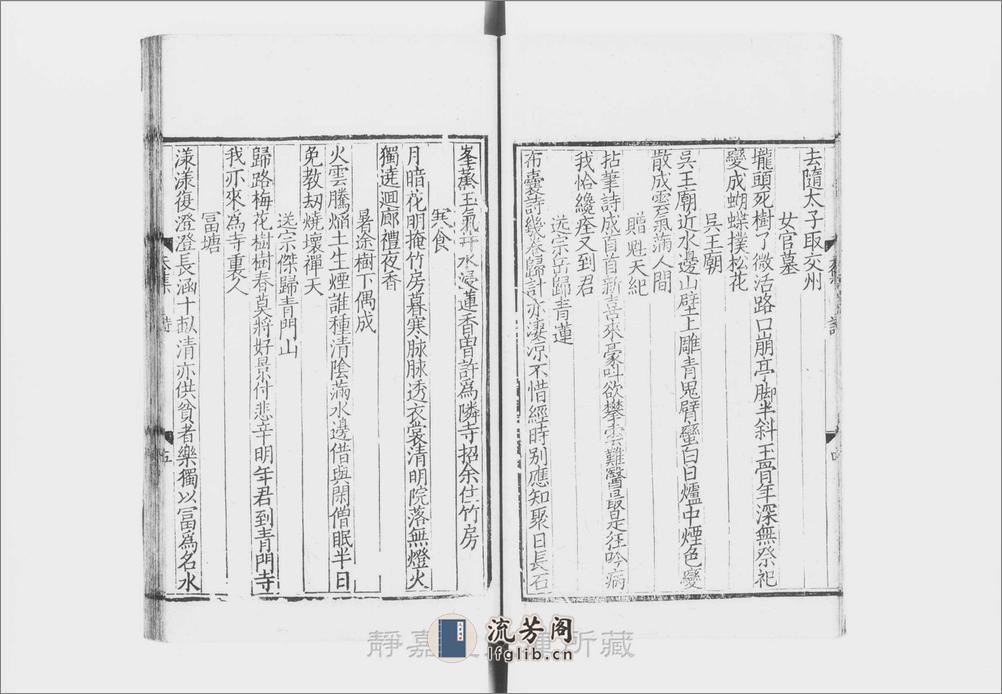 去隨太子取交州
女官墓
壠頭死樹了微活路口崩亭脚半斜玉骨年深無祭祀
變成蝴蝶撲松花
吳王廟
吳王廟近水邊山壁上雕青鬼臂蠻白日爐中煙色變
散成雲氣滿人間
贈 天紀
拈筆詩成首首新喜來豪叫欲攀雲難醫最是狂吟病
我恰纔痊又到君
送宗岳歸青蓮
布囊詩幾卷歸計亦凄凉不惜經時别應知聚日長石
峯蒸玉氣井水浸蓮香曾許為隣寺招余住竹房
寒食
月暗花明掩竹房暮寒脉脉透衣裳清明院落無燈火
獨遶迴廊禮夜香
暑途樹下偶成
火雲騰焔土生煙誰種清陰滿水邊借與閑僧眠半日
免教劫燒壞禪天
送宗傑歸青門山
歸路梅花樹樹春莫將好景付悲辛明年君到青門寺
我亦來為寺裏人
冨塘
漾漾復澄澄長涵十畒清亦供貧者樂獨以冨為名水
五
流芳阁
lfglib.cn
靜嘉 所藏